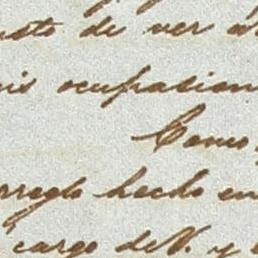 de ver
ocupacion
Como
arreglo hecho en
cargo de V. y